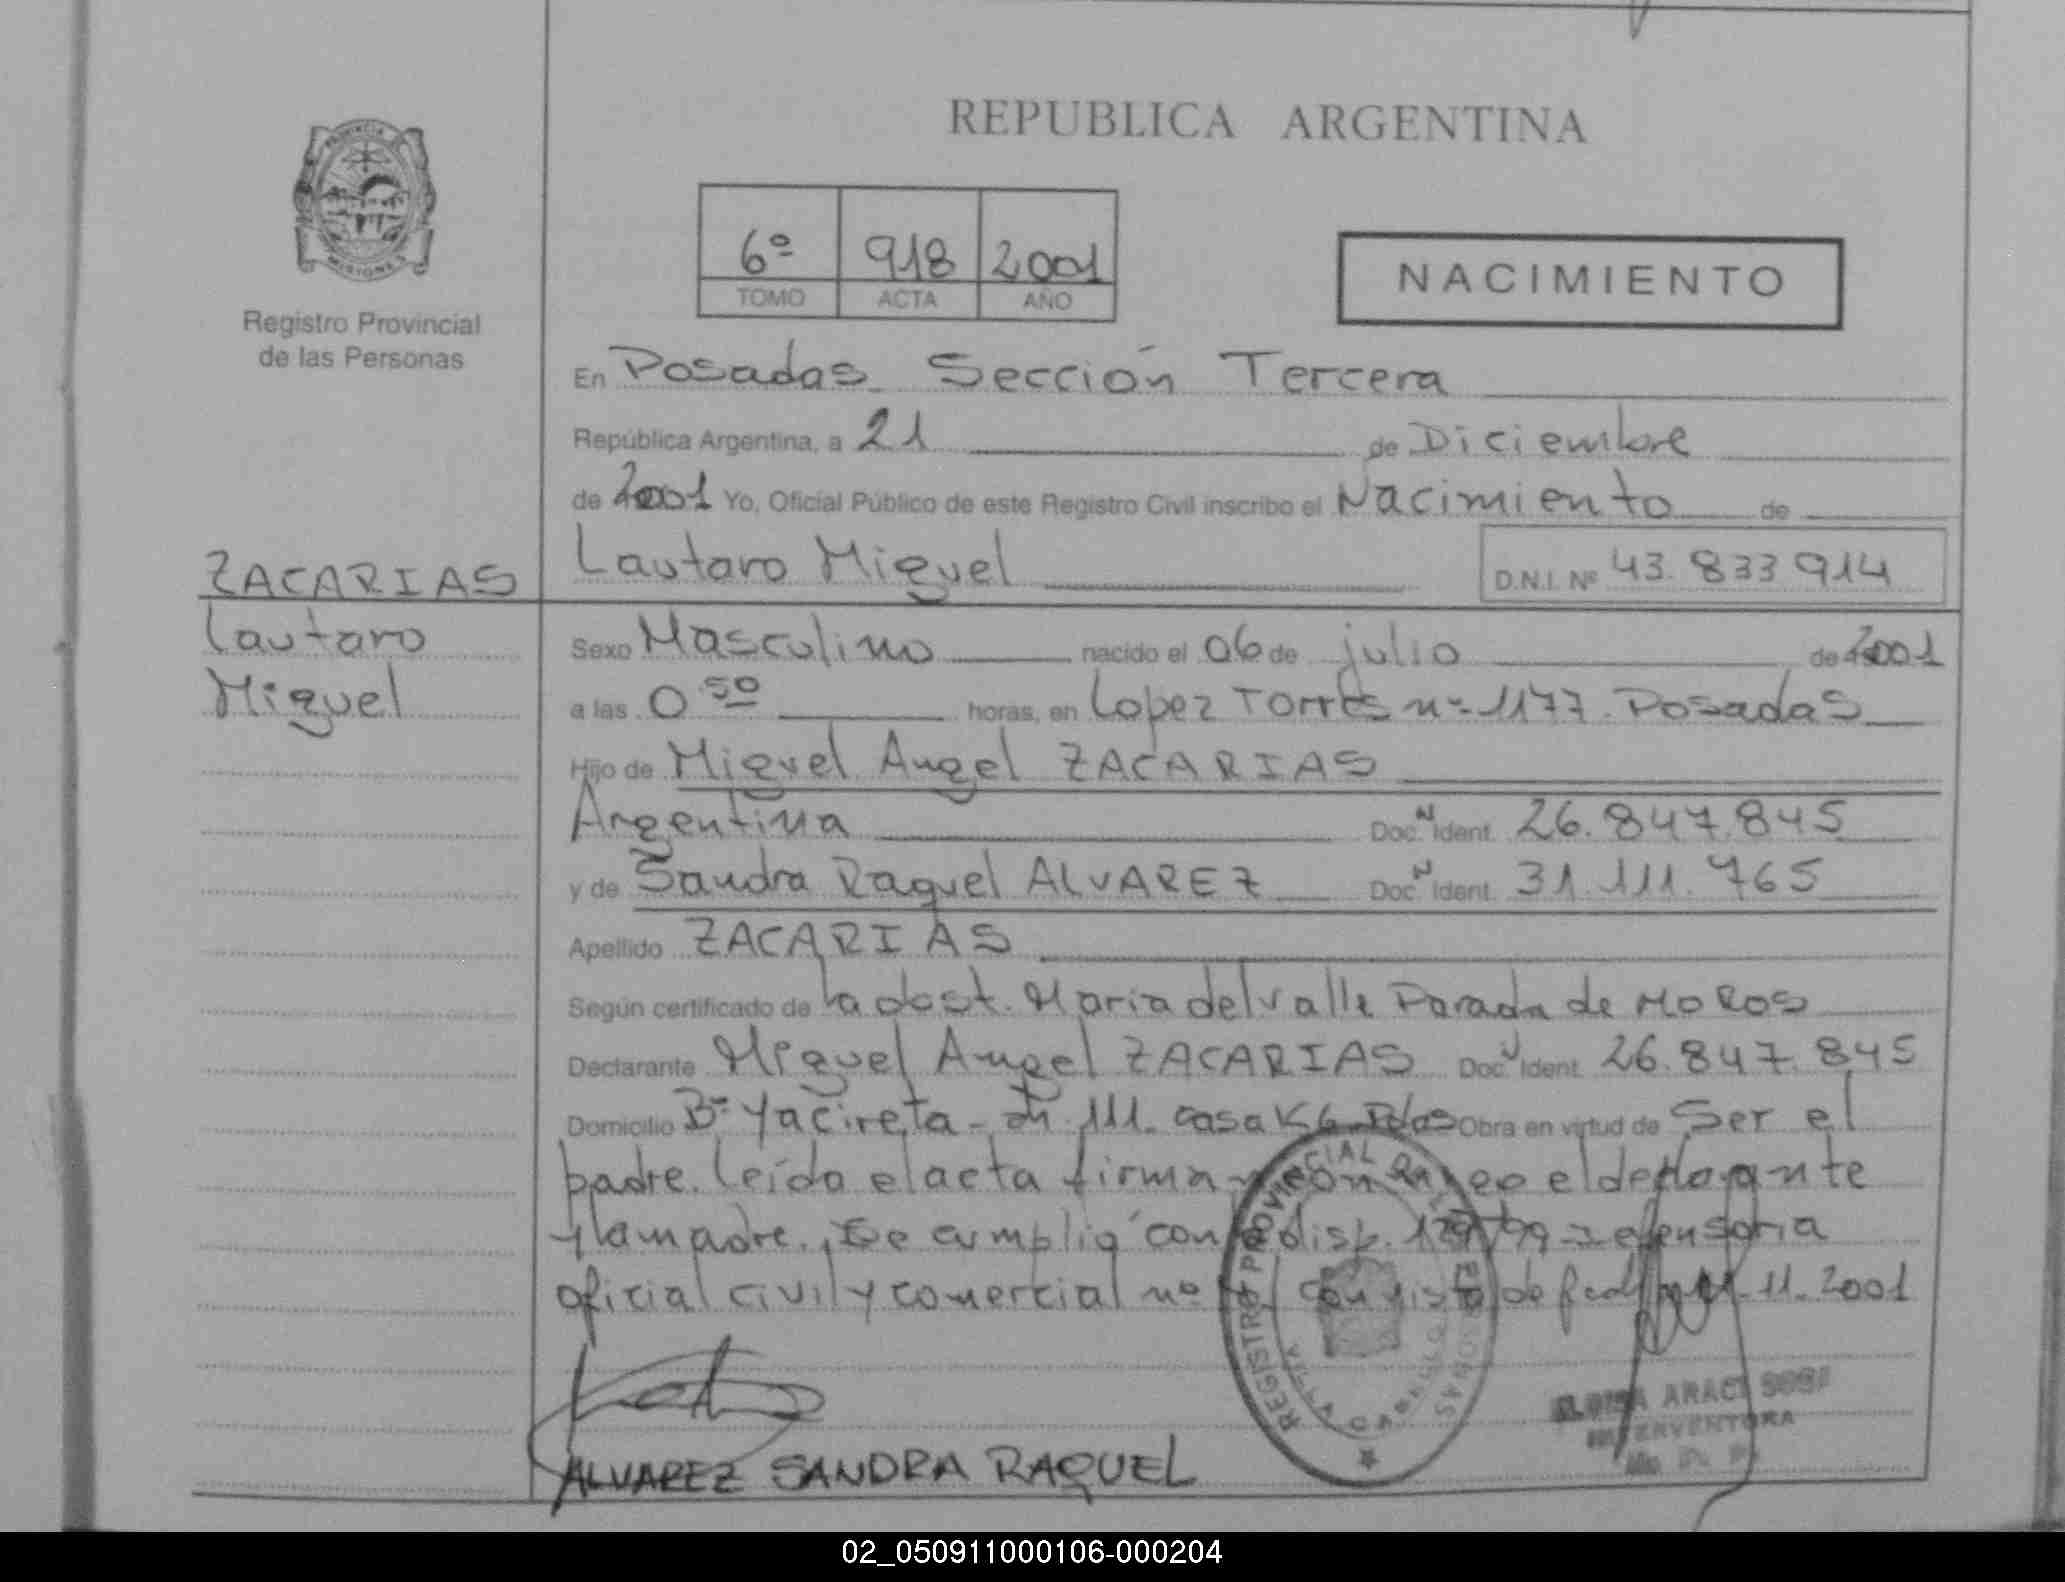 REPUBLICA ARGENTINA
PROVINCIA
MISIONES
Registro Provincial
de las Personas
6º 918 2001
TOMO ACTA AÑO
NACIMIENTO
En Posadas Sección Tercera
República Argentina, a 21 de Diciembre
de 2001 Yo, Oficial Público de este Registro Civil inscribo el Nacimiento de
ZACARIAS
Lautaro
Miguel
Lautaro Miguel D.N.I. Nº 43.833914
Sexo Masculino nacido el 06 de julio de 2001
a las 0 50 horas, en Lopez Torres nº 1177. Posadas
Hijo de Miguel Angel ZACARIAS
Argentina Doc. N Ident. 26.847.845
y de Sandra Raquel ALVAREZ Doc. N Ident. 31.111.765
Apellido ZACARIAS
Según certificado de la obst. Maria del valle Parada de MOROS
Declarante Miguel Angel ZACARIAS Doc. N Ident. 26.847.845
Domicilio Bº Yacireta - 111. casa K6 Pdas Obra en virtud de Ser el
padre. Leída el acta firma el declarante
y la madre. Se cumplió con disp. defensoria
oficial civil y comercial nº con vista de fecha 11. 2001
REGISTRO PROVINCIAL DE LAS PERSONAS
ALVAREZ SANDRA RAQUEL
ARACI SOSA
INTERVENTORA
02_050911000106-000204